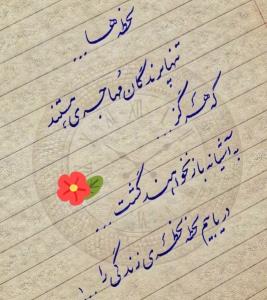 لحظه ها...
تنها پرندگان مهاجری هستند
که هرگز...
به آشیانه باز نخواهند گشت...
دریابیم لحظه لحظه ی زندگی را...!